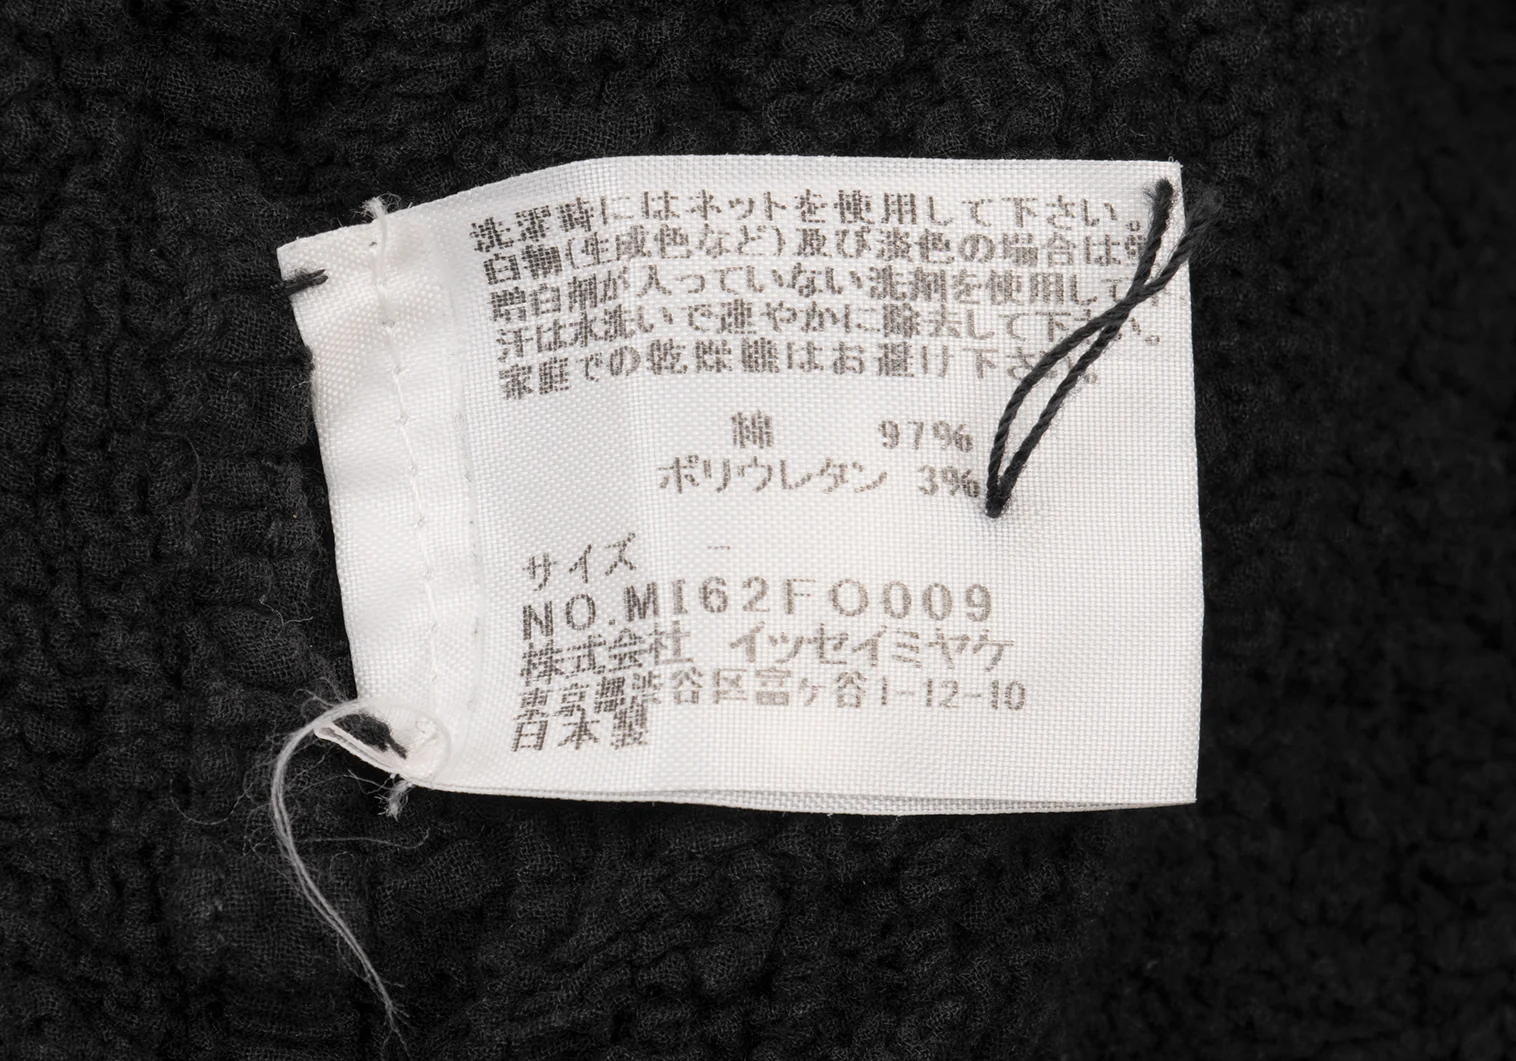 洗濯時にはネットを使用して下さい。
白物(生成色など)及び淡色の場合は蛍
増白剤が入っていない洗剤を使用して
汗は水洗いで速やかに除去して下さい。
家庭での乾燥機はお避け下さい。
綿 97%
ポリウレタン 3%
サイズ -
NO.MI62FO009
株式会社 イッセイミヤケ
東京都渋谷区富ヶ谷1-12-10
日本製